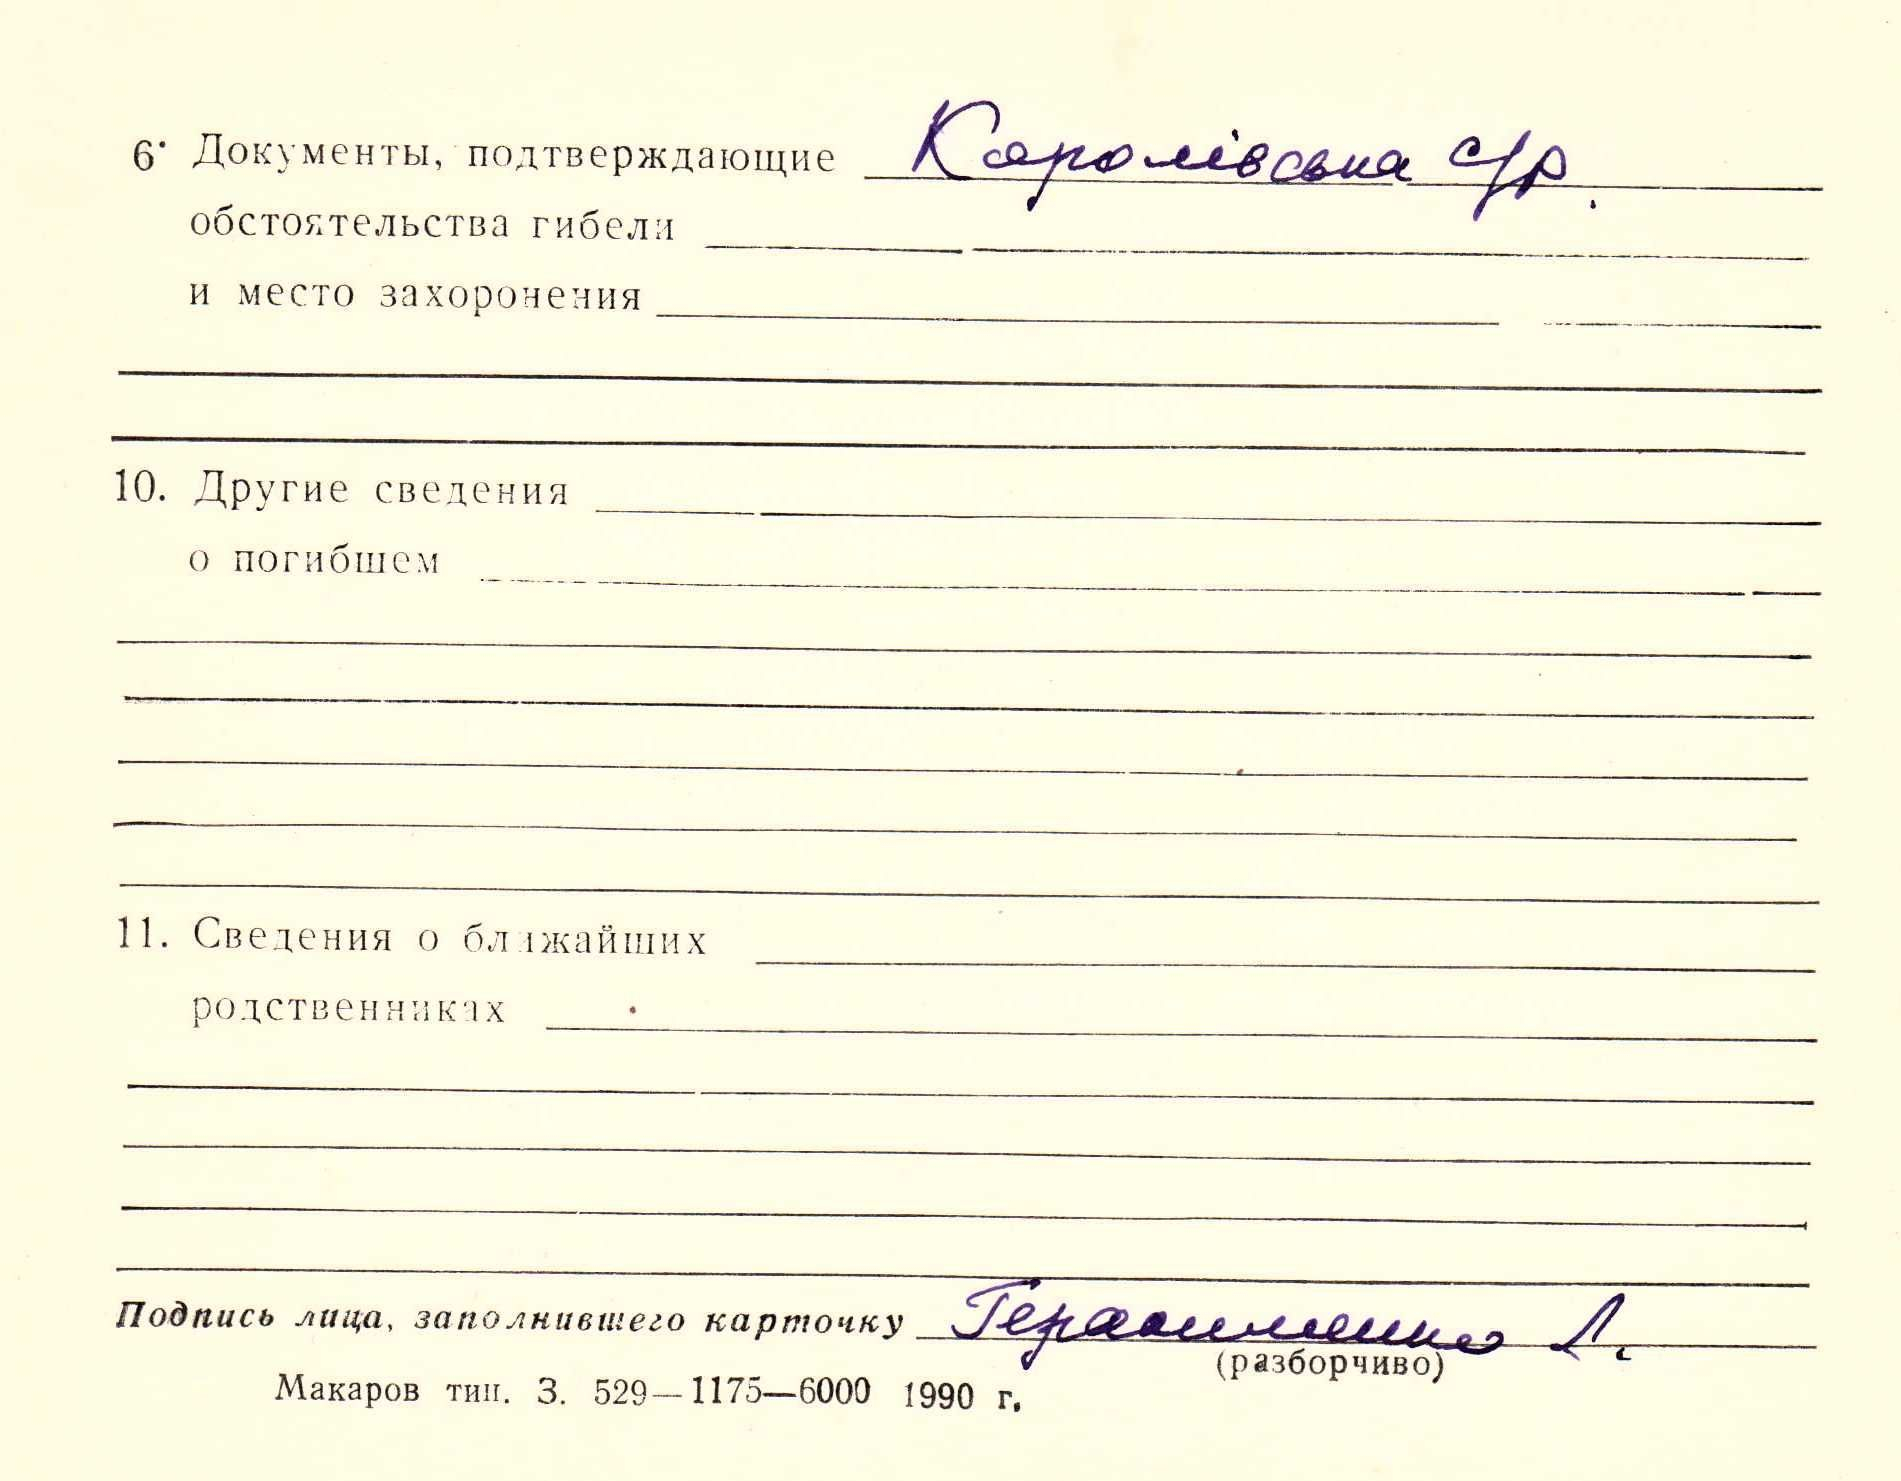 6. Документы, подтверждающие Королівська с/р.
обстоятельства гибели
и место захоронения
10. Другие сведения
о погибшем
11. Сведения о ближайших
родственниках
Подпись лица, заполнившего карточку Герасименко Л.
(разборчиво)
Макаров тип. З. 529—1175—6000 1990 г.